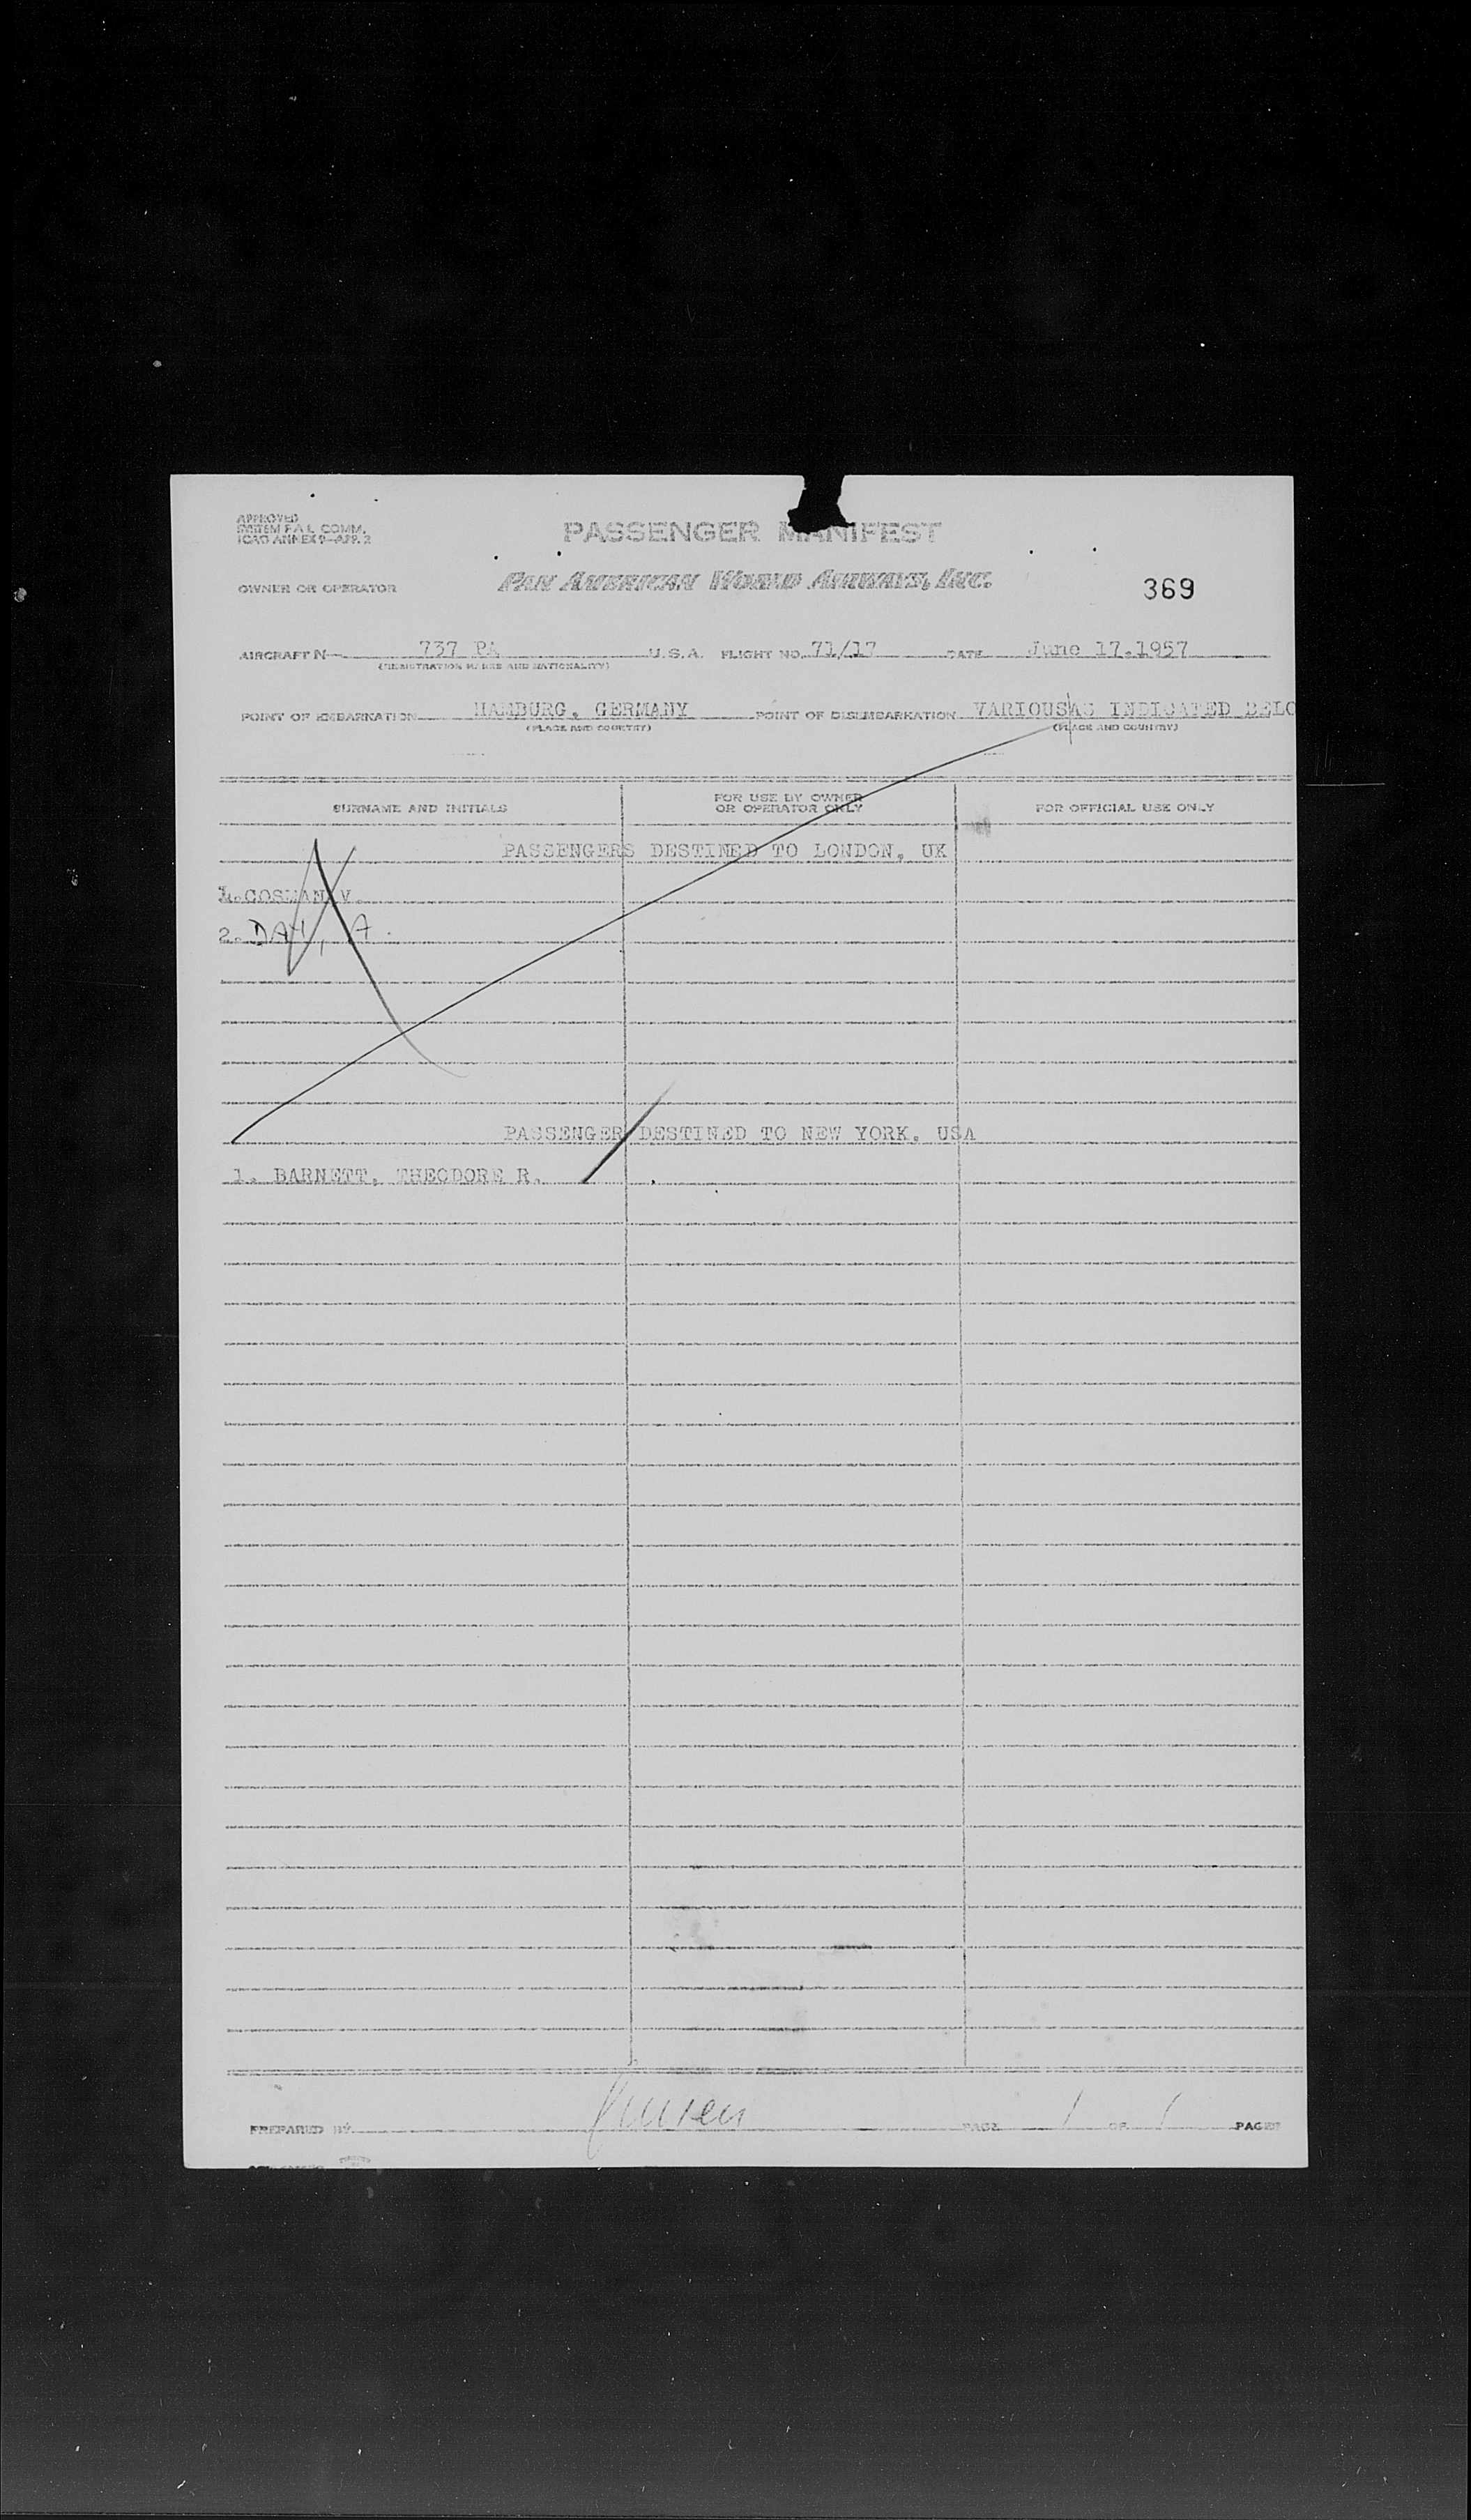 APPROVED
SYSTEM F.A.L. COMM.
ICAO ANNEX 9-APP. 2
PASSENGER MANIFEST
OWNER OR OPERATOR PAN AMERICAN WORLD AIRWAYS, INC. 369
AIRCRAFT N 737 PA U.S.A. FLIGHT NO. 71/17 DATE June 17.1957
(REGISTRATION MARKS AND NATIONALITY)
POINT OF EMBARKATION HAMBURG, GERMANY POINT OF DISEMBARKATION VARIOUS AS INDICATED BELO
(PLACE AND COUNTRY) (PLACE AND COUNTRY)
SURNAME AND INITIALS FOR USE BY OWNER OR OPERATOR ONLY FOR OFFICIAL USE ONLY
PASSENGERS DESTINED TO LONDON, UK
1. COSMAN V.
2. DAY, A.
PASSENGER DESTINED TO NEW YORK, USA
1. BARNETT, THEODORE R.
PREPARED BY PAGE 1 OF 1 PAGES